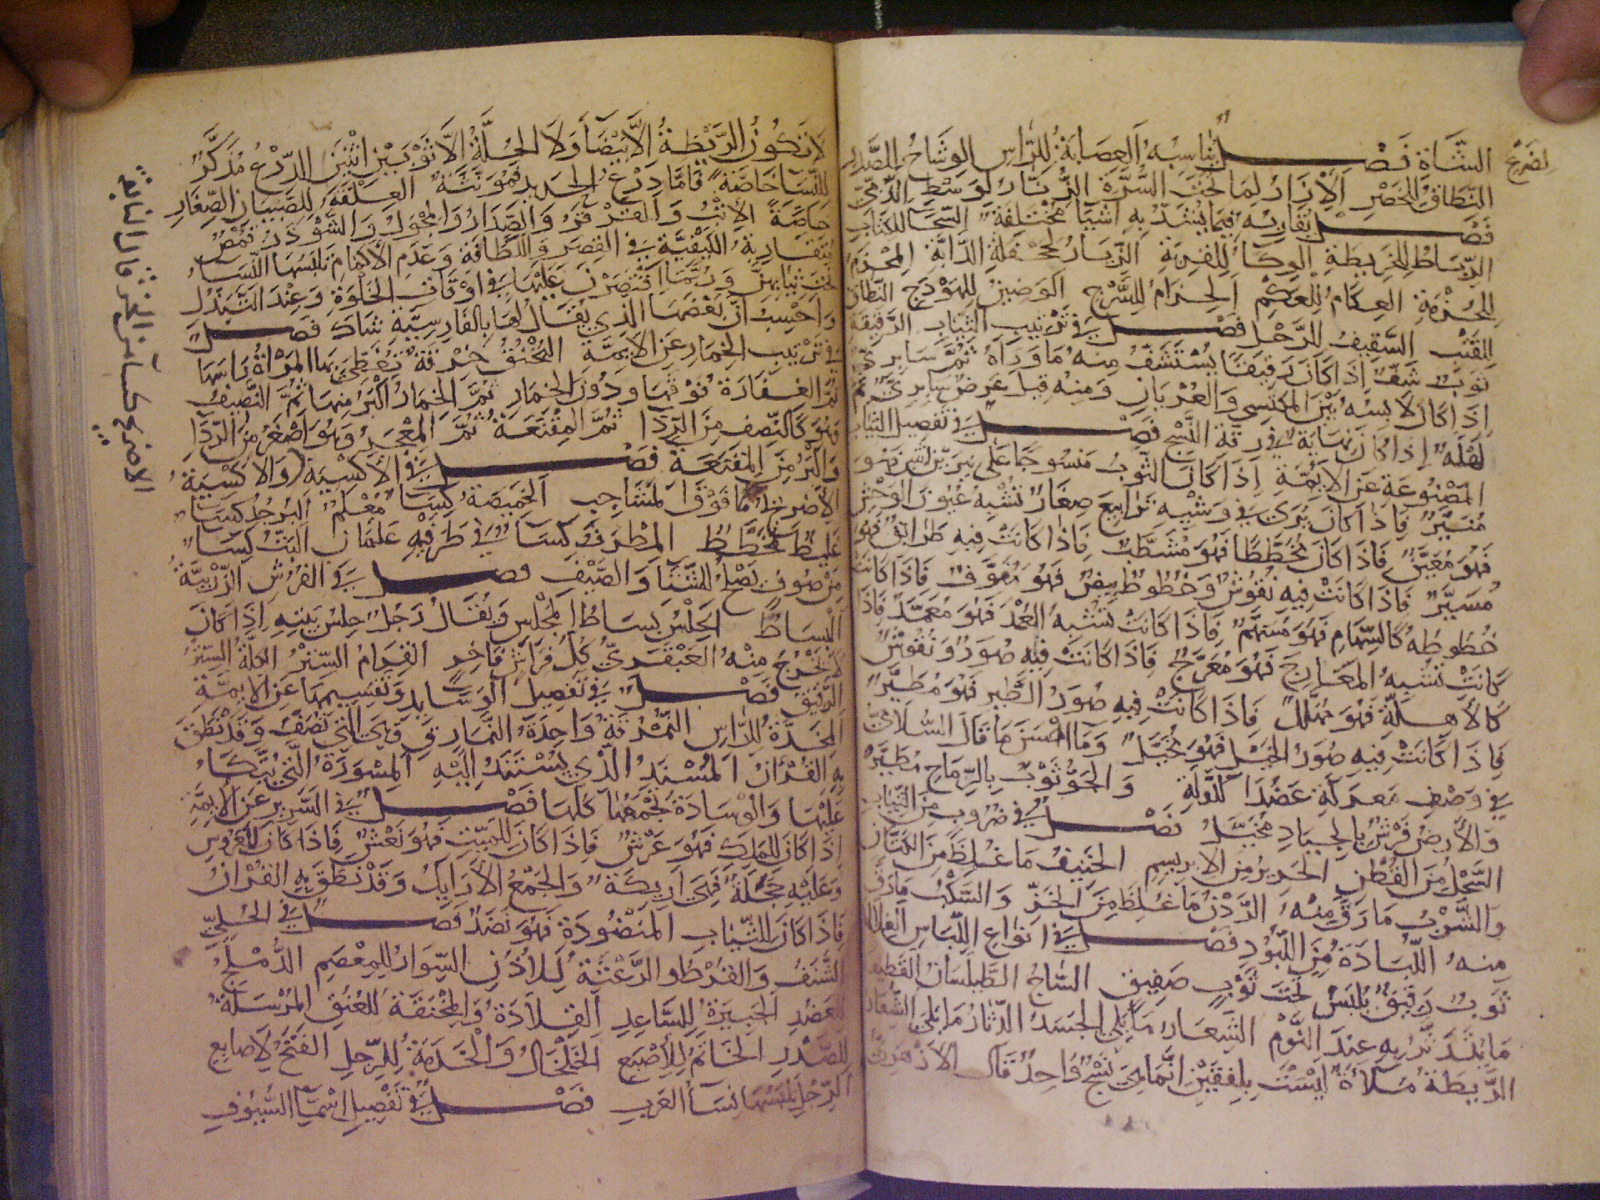 لضرع
الشاة فصل يناسبه العصابة للراس الوشاح للصدر
النطاق للخصر الازار لما تحت السرة الزنار لوسط الذمي
فصل يقاربه فيما يشد به اشيا مختلفة السحا للكتاب
الرباط للخريطة الوكا للقربة الزيار لجحفلة الدابة المحزم
للحزمة العكام للعكم الحزام للسرج الوضين للهودج البطان
للقتب السفيف للرحل فصل في ترتيب الثياب الرقيقة
ثوب شف اذا كان رقيقا يستشف منه ما وراه ثم سابري
اذا كان لابسه بين المكتسي والعريان ومنه قيل عرض سابري ثم
لهله اذا كان نهاية في رقة النسج فصل في تفصيل الثياب
المصنوعة عن الايمة اذا كان الثوب منسوجا على نيرين اثنين فهو
منير فاذا كان يرى في وشيه ترابيع صغار تشبه عيون الوحش
فهو معين فاذا كان مخططا فهو مشطب فاذا كانت فيه طرايق فهو
مسير فاذا كانت فيه نقوش وخطوط بيض فهو مفوف فاذا كانت
خطوطه كالسهام فهو مسهم فاذا كانت تشبه العمد فهو معمد فاذا
كانت تشبه المعارج فهو معرج فاذا كانت فيه صور ونقوش
كالاهلة فهو مهلل فاذا كانت فيه صور الطير فهو مطير
فاذا كانت فيه صور الخيل فهو مخيل وما احسن ما قال السلامي
في وصف معركة عضد الدولة والجو ثوب بالرماح مطير
والارض فرش بالجياد مخيل فصل في ضروب من الثياب
السحل من القطن الحرير من الابريسم الخنيف ما غلظ من الكتان
والشرب ما رق منه الردن ما غلظ من الخز والسكب ما رق
منه اللبادة من اللبود فصل في انواع اللباس الغلالة
ثوب رقيق يلبس تحت ثوب صفيق الساج الطيلسان القطيفة
ما يتدثر به عند النوم الشعار ما يلي الجسد الدثار ما يلي الشعار
الريطة ملاة ليست بلفقين انما هي نسج واحد قال الازهري
لا تكون الريطة الا بيضا ولا الحلة الا ثوبين اثنين الدرع مذكر
للنسا خاصة فاما درع الحديد فمونثة العلقة للصبيان الصغار
خاصة الاتب والقرقر والصدار والمجول والشوذر قمص
متقاربة الكيفية في القصر واللطافة وعدم الاكمام تلبسها النسا
تحت ثيابهن وربما اقتصرن عليها في اوقات الخلوة وعند التبذل
واحسب ان بعضها الذي يقال لها بالفارسية شاك فصل
في ترتيب الخمار عن الايمة البخنق خرقة تغطي بها المراة راسها
ثم الغفارة فوقها ودون الخمار ثم الخمار اكبر منها ثم النصيف
وهو كالنصف من الردا ثم المقنعة ثم المعجر وهو اصغر من الردا
واكبر من المقنعة فصل في الاكسية والاكسية
الاضريج ما فوق المناجب الخميصة كسا معلم البرجد كسا
غليظ مخطط المطرف كسا في طرفيه علمان البت كسا
من صوف يصلح للشتا والصيف فصل في الفرش الزربية
البساط الحلس بساط المجلس ويقال رجل حلس بيته اذا كان
لا يخرج منه العبقري كل فراش فاخر القرام الستر الكلة الستر
الرقيق فصل في تفصيل الوسايد وتقسيمها عن الايمة
المخدة للراس النمرقة واحدة النمارق وهي التي تصف وقد نطق
به القران المسند الذي يستند اليه المسورة التي يتكا
عليها والوسادة تجمعها كلها فصل في السرير عن الايمة
اذا كان للملك فهو عرش فاذا كان للميت فهو نعش فاذا كان للعروس
وعليه حجلة فهي اريكة والجمع الارايك وقد نطق به القران
فاذا كان للثياب المنضودة فهو نضد فصل في الحلي
الشنف والقرط والرعثة للاذن السوار للمعصم الدملج
للعضد الجبيرة للساعد القلادة والمخنقة للعنق المرسلة
للصدر الخاتم للاصبع الخلخال والخدمة للرجل الفتخ لاصابع
الرجل تلبسها نسا العرب فصل في تفصيل اسما السيوف
الاضريج كسا من الخز